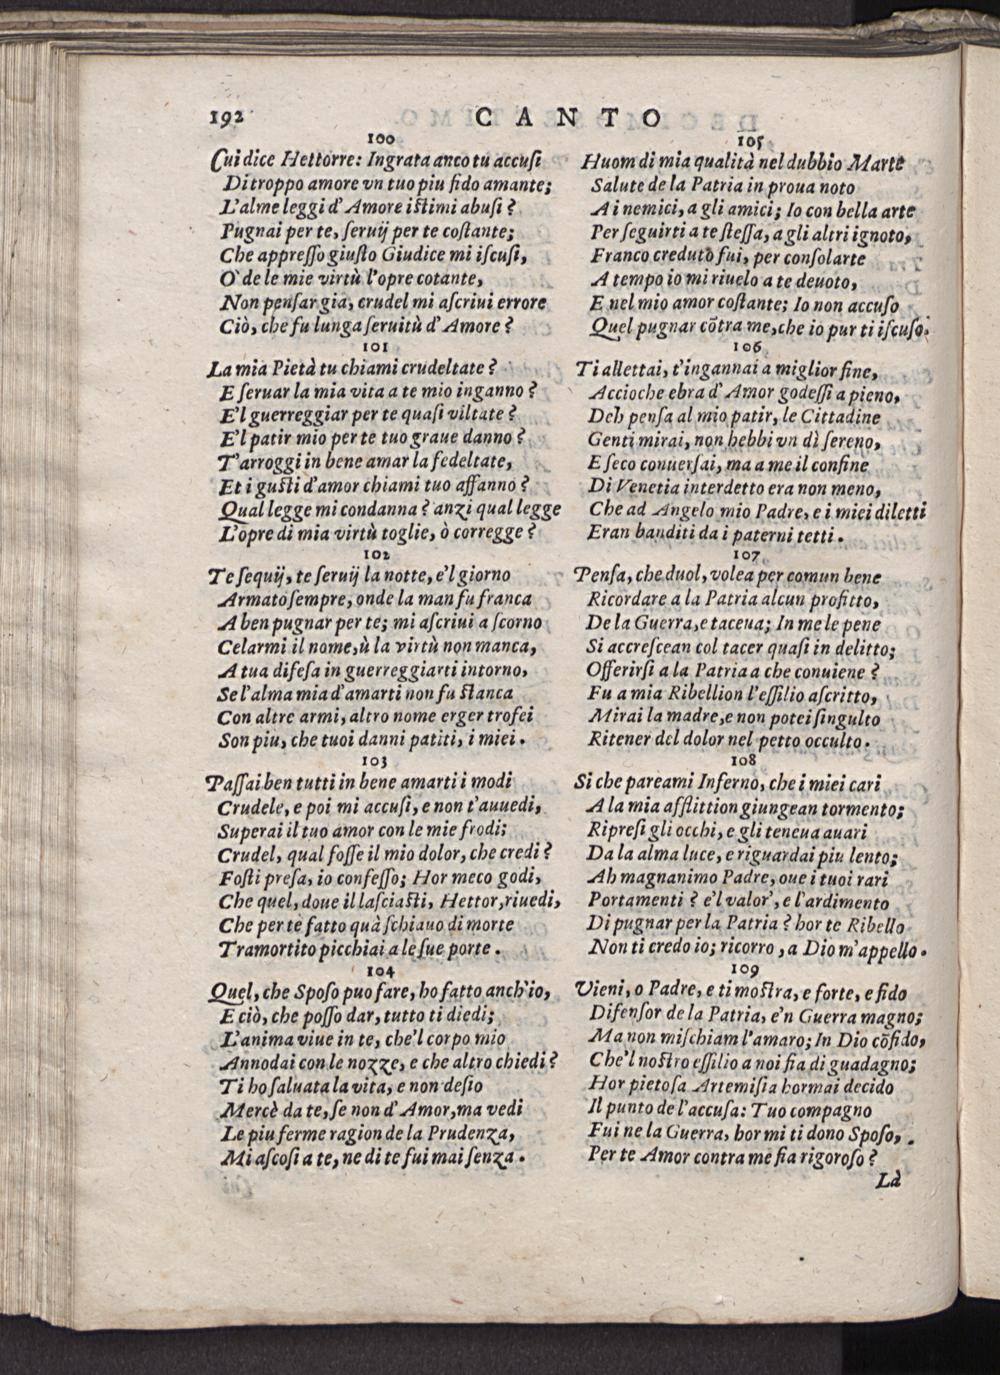 192 CANTO
100
Cui dice Hettorre: Ingrata anco tu accusi
Di troppo amore vn tuo piu fido amante;
L'alme leggi d'Amore istimi abusi?
Pugnai per te, seruij per te costante;
Che appresso giusto Giudice mi iscusi,
O' de le mie virtù l'opre cotante,
Non pensar gia, crudel mi ascriui errore
Ciò, che fu lunga seruitù d'Amore?
101
La mia Pietà tu chiami crudeltate?
E seruar la mia vita a te mio inganno?
E'l guerreggiar per te quasi viltate?
E'l patir mio per te tuo graue danno?
T'arroggi in bene amar la fedeltate,
Et i gusti d'amor chiami tuo affanno?
Qual legge mi condanna? anzi qual legge
L'opre di mia virtù toglie, ò corregge?
102
Te sequij, te seruij la notte, e'l giorno
Armato sempre, onde la man fu franca
A ben pugnar per te; mi ascriui a scorno
Celarmi il nome, ù la virtù non manca,
A tua difesa in guerreggiarti intorno,
Se l'alma mia d'amarti non fu stanca
Con altre armi, altro nome erger trofei
Son piu, che tuoi danni patiti, i miei.
103
Passai ben tutti in bene amarti i modi
Crudele, e poi mi accusi, e non t'auuedi,
Superai il tuo amor con le mie frodi;
Crudel, qual fosse il mio dolor, che credi?
Fosti presa, io confesso; Hor meco godi,
Che quel, doue il lasciasti, Hettor, riuedi,
Che per te fatto quà schiauo di morte
Tramortito picchiai a le sue porte.
104
Quel, che Sposo puo fare, ho fatto anch'io,
E ciò, che posso dar, tutto ti diedi;
L'anima viue in te, che'l corpo mio
Annodai con le nozze, e che altro chiedi?
Ti ho saluata la vita, e non desio
Mercè da te, se non d'Amor, ma vedi
Le piu ferme ragion de la Prudenza,
Mi ascosi a te, ne di te fui mai senza.
105
Huom di mia qualità nel dubbio Marte
Salute de la Patria in proua noto
A i nemici, a gli amici; Io con bella arte
Per seguirti a te stessa, a gli altri ignoto,
Franco creduto fui, per consolarte
A tempo io mi riuelo a te deuoto,
E nel mio amor costante; Io non accuso
Quel pugnar cōtra me, che io pur ti iscuso.
106
Ti allettai, t'ingannai a miglior fine,
Accioche ebra d'Amor godessi a pieno,
Deh pensa al mio patir, le Cittadine
Genti mirai, non hebbi vn dì sereno,
E seco conuersai, ma a me il confine
Di Venetia interdetto era non meno,
Che ad Angelo mio Padre, e i miei diletti
Eran banditi da i paterni tetti.
107
Pensa, che duol, volea per comun bene
Ricordare a la Patria alcun profitto,
De la Guerra, e taceua; In me le pene
Si accrescean col tacer quasi in delitto;
Offerirsi a la Patria a che conuiene?
Fu a mia Ribellion l'essilio ascritto,
Mirai la madre, e non potei singulto
Ritener del dolor nel petto occulto.
108
Si che pareami Inferno, che i miei cari
A la mia afflittion giungean tormento;
Ripresi gli occhi, e gli teneua auari
Da la alma luce, e riguardai piu lento;
Ah magnanimo Padre, oue i tuoi rari
Portamenti? e'l valor, e l'ardimento
Di pugnar per la Patria? hor te Ribello
Non ti credo io; ricorro, a Dio m'appello.
109
Vieni, o Padre, e ti mostra, e forte, e fido
Difensor de la Patria, e'n Guerra magno;
Ma non mischiam l'amaro; In Dio cōfido,
Che'l nostro essilio a noi fia di guadagno;
Hor pietosa Artemisia hormai decido
Il punto de l'accusa: Tuo compagno
Fui ne la Guerra, hor mi ti dono Sposo,
Per te Amor contra me fia rigoroso?
Là